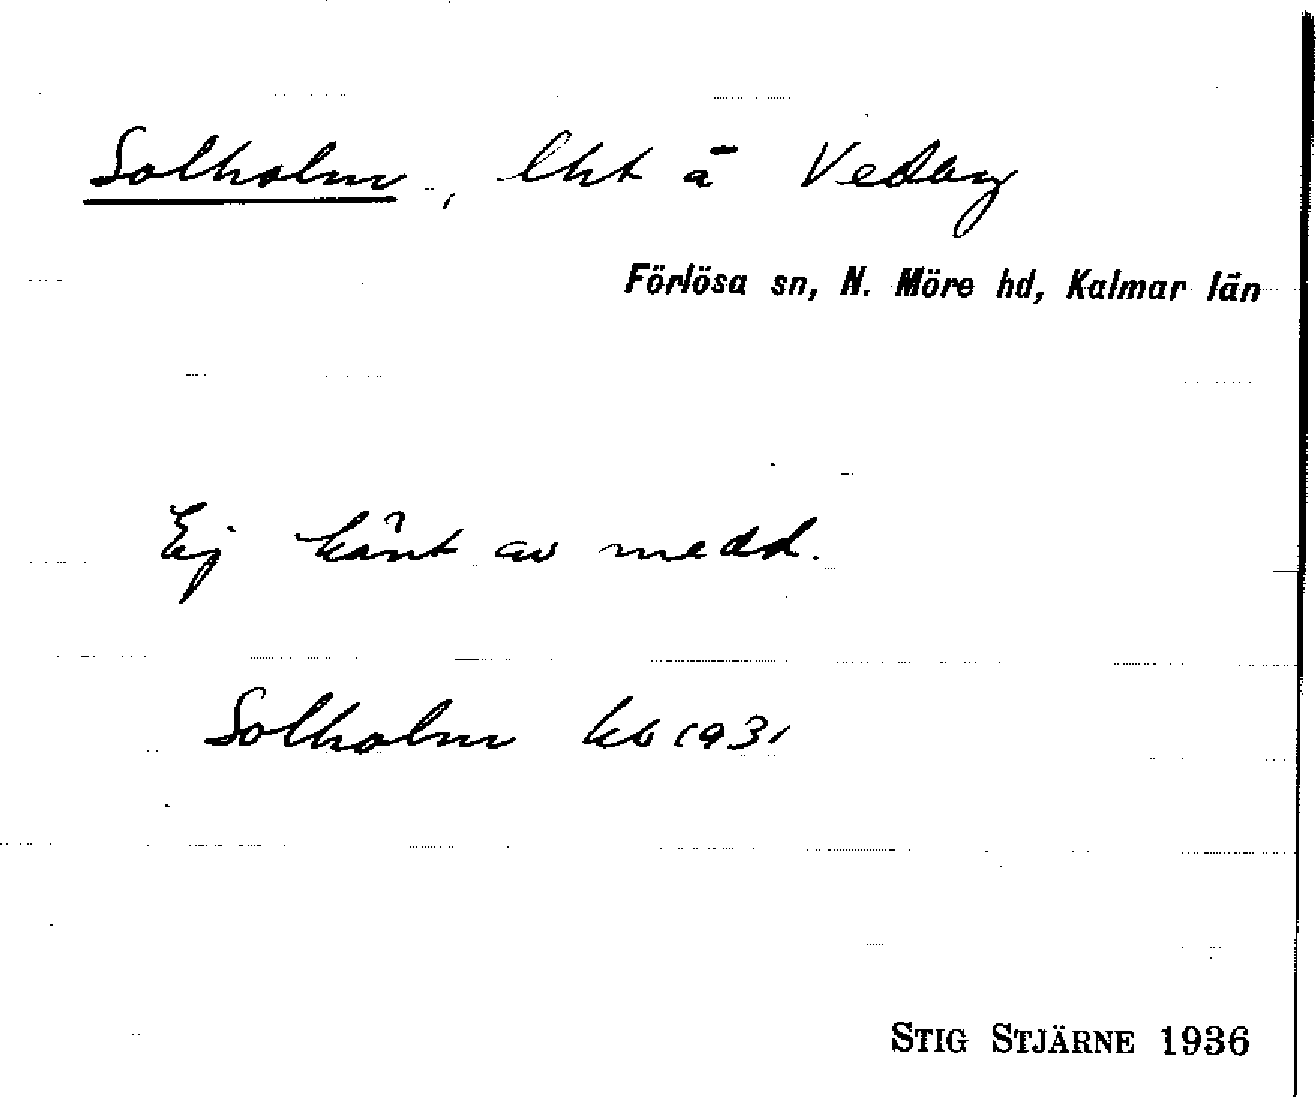 Solholm, lht å Vedby
Förlösa sn, N. Möre hd, Kalmar län
Ej känt av medd.
Solholm kb 1931
STIG STJÄRNE 1936